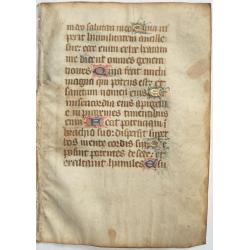 meo salutari meo Quia res
pexit humilitatem ancille
sue: ecce enim ex hoc beatam
me dicent omnes genera
tiones Quia fecit michi
magna qui potens est: et
sanctum nomen eius Et
misericordia eius a progenie
in progenies timentibus
eum Fecit potenciam in
brachio suo: dispersit super
bos mente cordis sui De
posuit potentes de sede: et
exaltauit humiles Esu